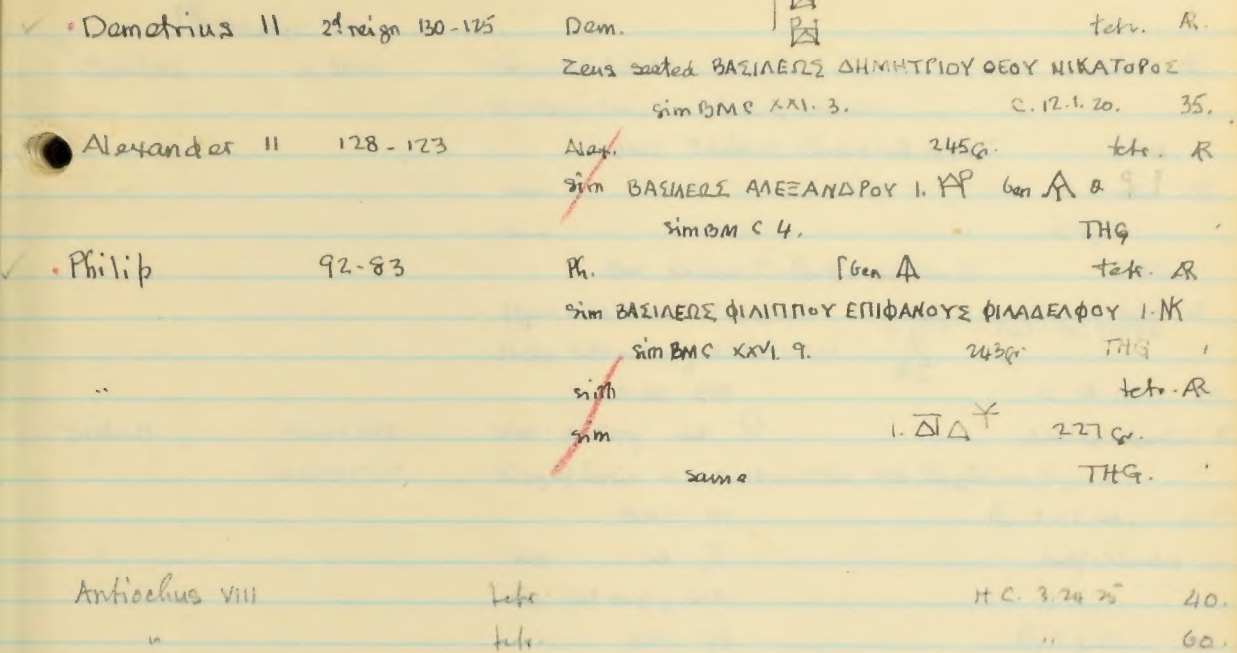 Demetrius II 2d reign 130-125 Dem. tetr. AR.
Zeus seated ΒΑΣΙΛΕΩΣ ΔΗΜΗΤΡΙΟΥ ΘΕΟΥ ΝΙΚΑΤΟΡΟΣ
sim BMC XXI. 3. C. 12.1.20. 35.
Alexander II 128-123 Alex. 245 gr. tetr. AR
sim ΒΑΣΙΛΕΩΣ ΑΛΕΞΑΝΔΡΟΥ l. ben
sim BMC 4. THG
Philip 92-83 Ph. ben tetr. AR
sim ΒΑΣΙΛΕΩΣ ΦΙΛΙΠΠΟΥ ΕΠΙΦΑΝΟΥΣ ΦΙΛΑΔΕΛΦΟΥ l.
sim BMC XXVI. 9. 243 gr. THG
" sim tetr. AR
sim l. 227 gr.
same THG.
Antiochus VIII tetr HC. 3.24 25 40.
" tetr. " 60.